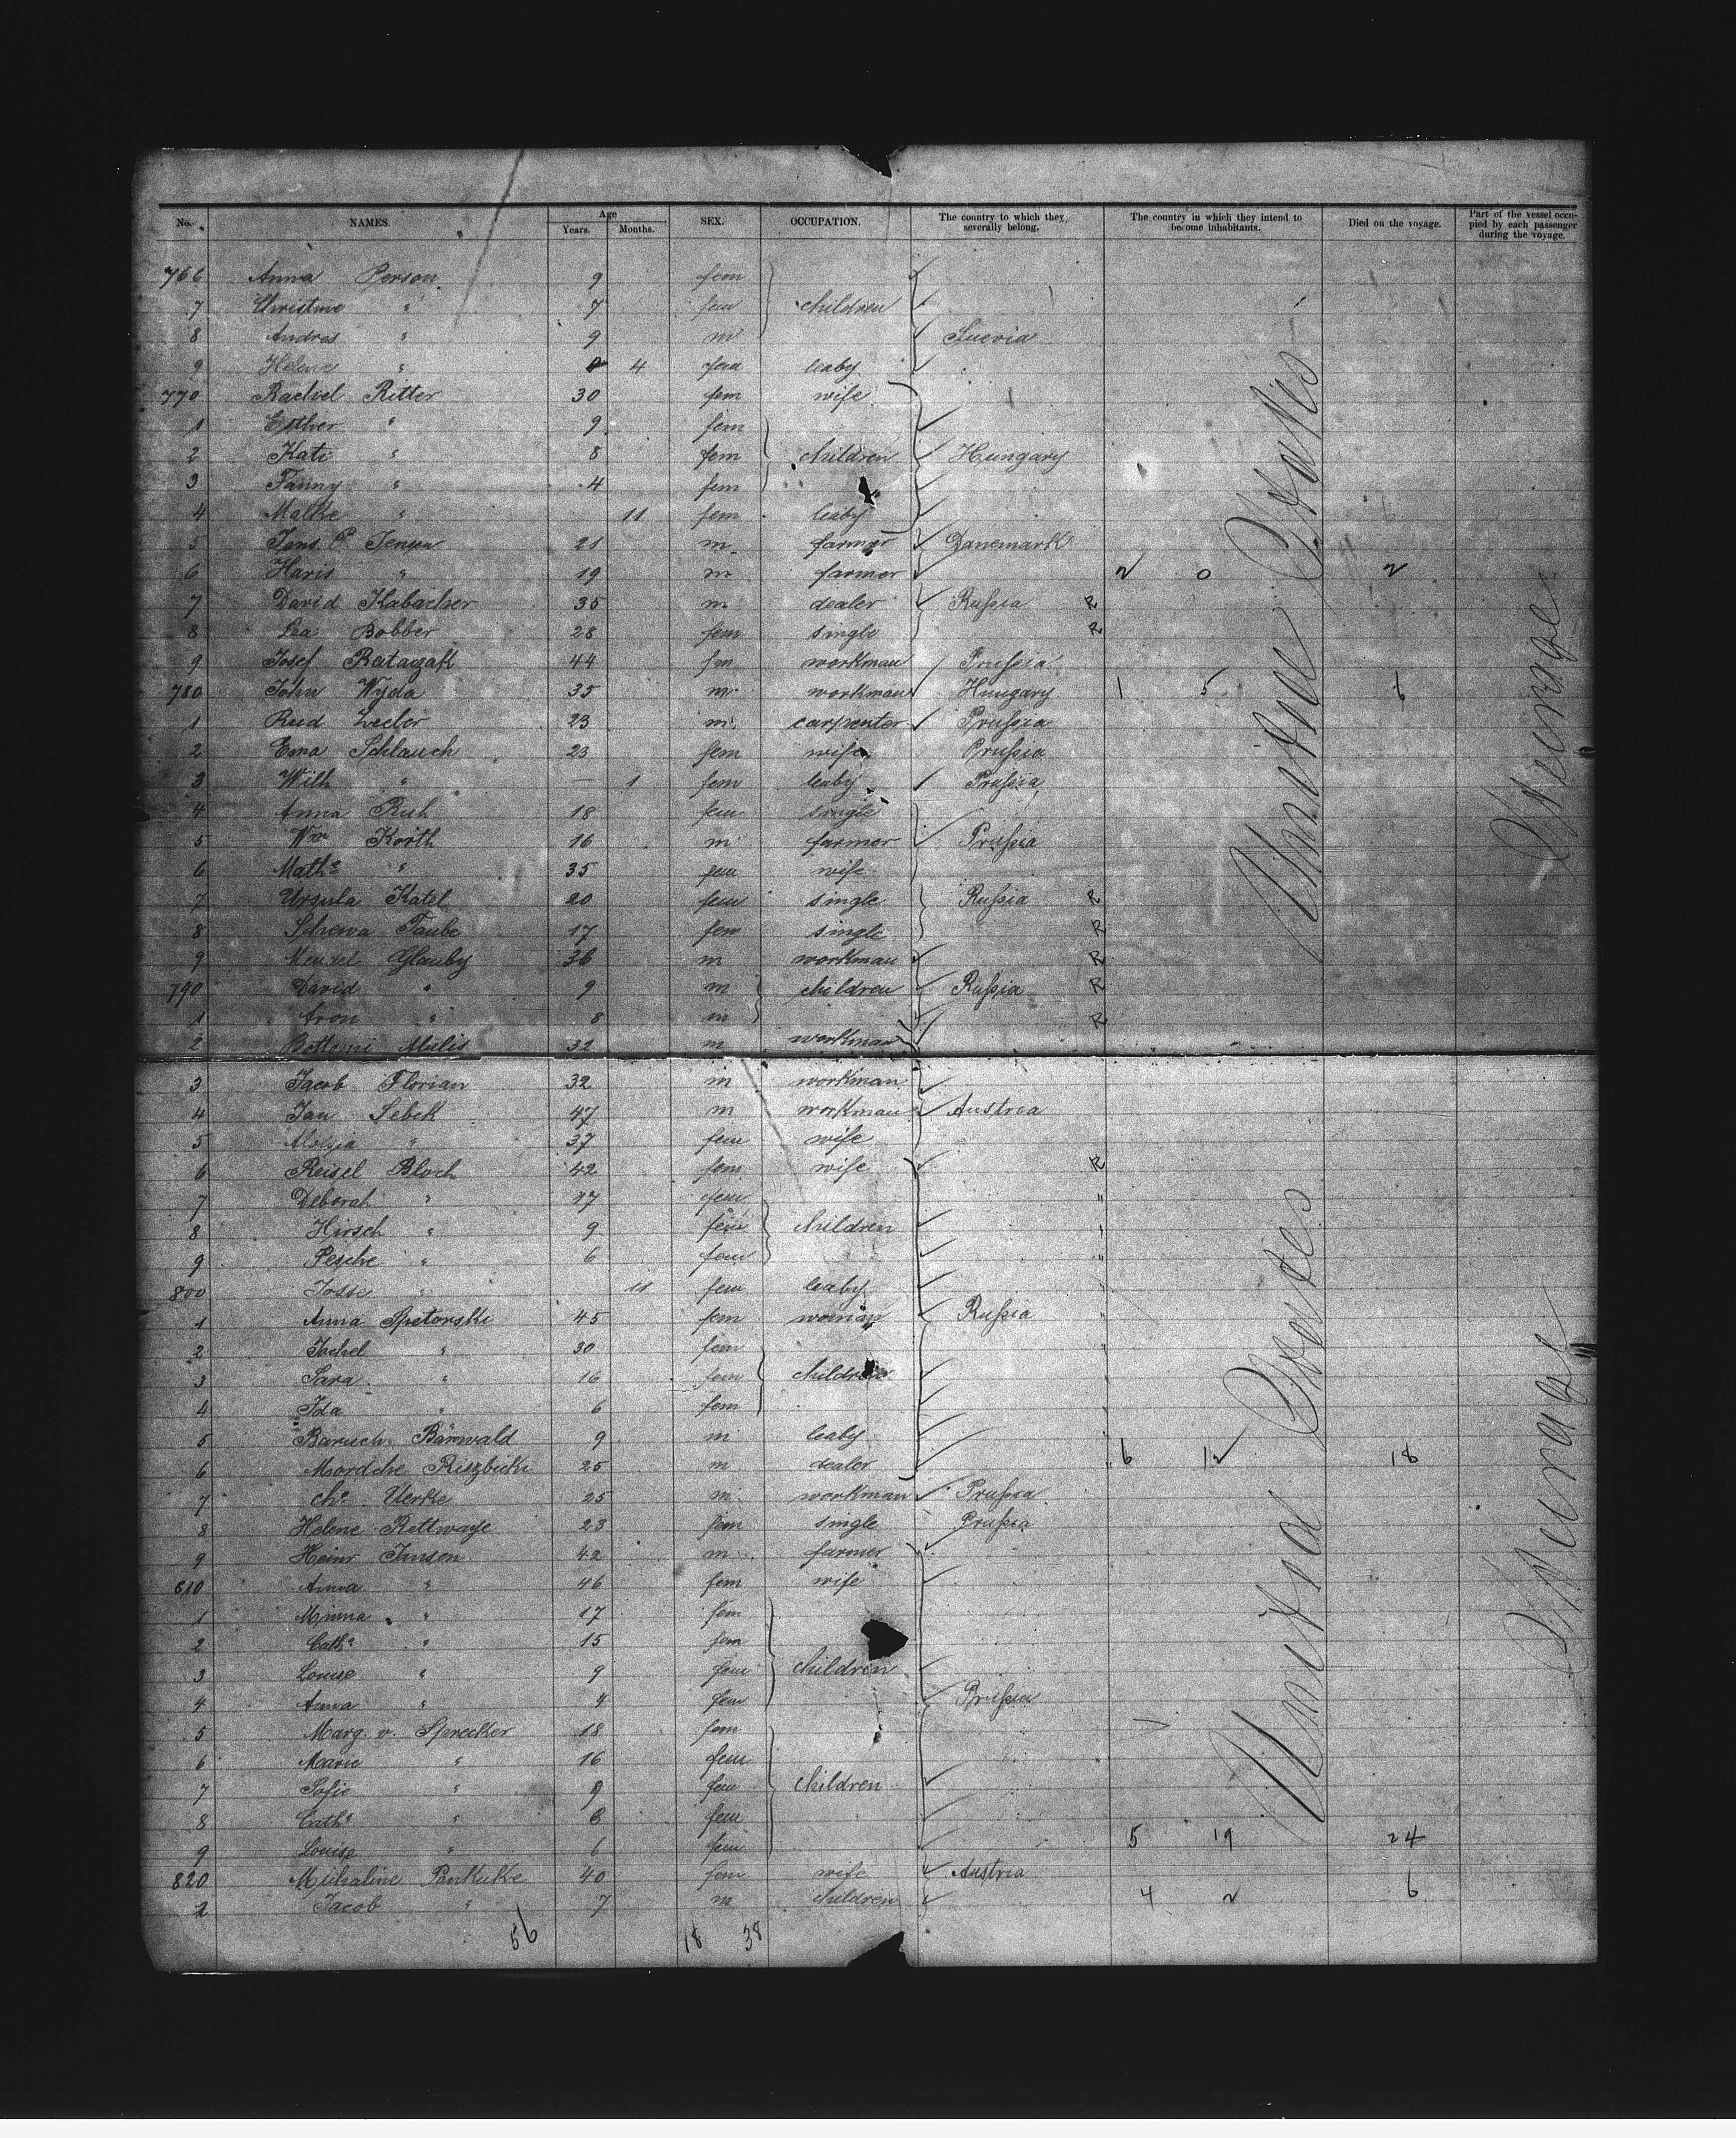 No. NAMES. Age Years. Months. SEX. OCCUPATION. The country to which they severally belong. The country in which they intend to become inhabitants. Died on the voyage. Part of the vessel occupied by each passenger during the voyage.
766 Anna Person 9 fem
7 Christine " 7 fem children
8 Andres " 9 m Suevia
9 Helene " 0 4 fem baby
770 Rachel Ritter 30 fem wife
1 Esther " 9 fem
2 Kati " 8 fem children Hungary
3 Fanny " 4 fem
4 Malke " 11 fem baby
5 Jens. P. Jensen 21 m farmer Danemark
6 Haris " 19 m farmer 2 0 2
7 David Kabacher 35 m dealer Russia R
8 Lea Bobber 28 fem single R
9 Josef Ratagak 44 workman Prussia
780 John Wyda 35 m workman Hungary 1 5 6
1 Rud 23 m carpenter Prussia
2 Ema Schlauch 23 fem wife Prussia
3 Wilh " — 1 fem baby Prussia
4 Anna Ruh 18 fem single
5 Wm Korth 16 m farmer Prussia
6 Mathe " 35 fem wife
7 Ursula Katel 20 fem single Russia R
8 Schewa Taube 17 fem single R
9 Glauby 36 m workman R
790 David " 9 m children Russia R
1 Aron " 8 m R
2 Mulis 32 m workman
3 Jacob Florian 32 m workman
4 Jan Sebek 47 m workman Austria
5 " 37 fem wife
6 Reisel Bloch 42 fem wife R
7 Deborah " 17 fem "
8 Hirsch " 9 fem children "
9 Pesche " 6 fem "
800 Josse " 11 fem baby "
1 Anna Spetorski 45 fem woman Russia "
2 Jachel " 30 fem "
3 Sara " 16 fem children "
4 Ida " 6 fem "
5 Baruch Bärwald 9 m baby
6 Mordche Riszbicki 25 m dealer " 6 12 18
7 Che Uerke 25 m workman Prussia
8 Helene Rettwaye 23 fem single Prussia
9 Heinr Jansen 42 m farmer
810 Anna " 46 fem wife
1 Minna " 17 fem
2 Cathe " 15 fem
3 Louise " 9 fem children
4 Anna " 4 fem Prussia
5 Marg. v. Sprecker 18 fem
6 Marie " 16 fem
7 Sofie " 9 fem children
8 Cathe " 8 fem
9 Louise " 6 fem 5 19 24
820 Michaline Pankuke 40 fem wife Austria
1 Jacob " 7 m children 4 2 6
56 18 38
United States
Steerage
United States
Steerage